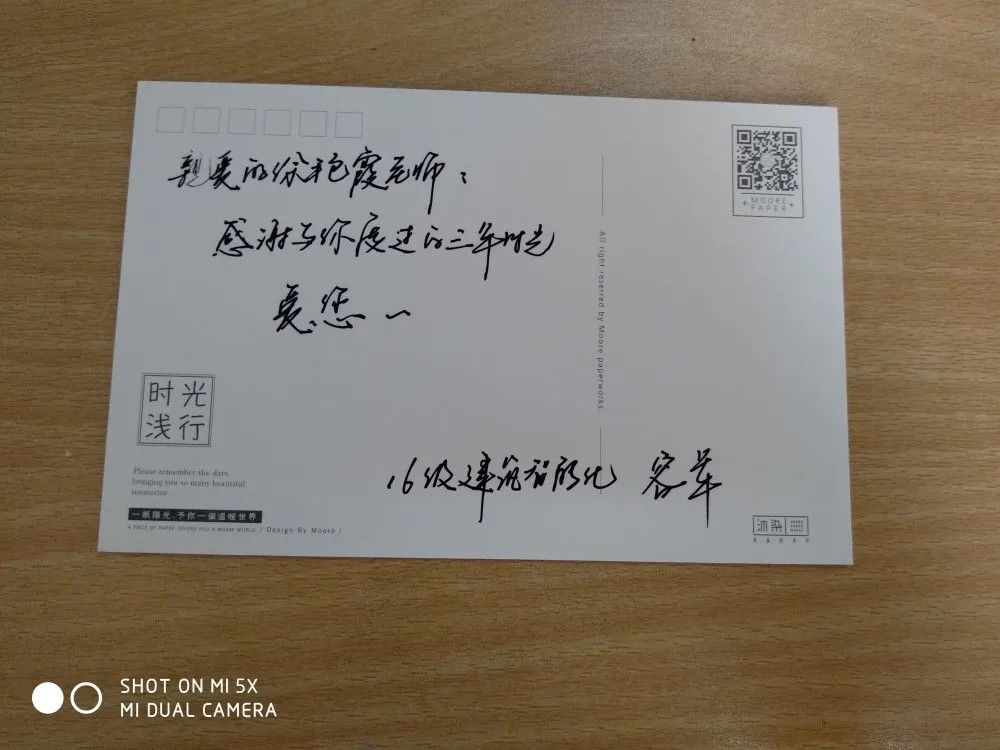 亲爱的徐艳霞老师：
感谢与你度过的三年时光
爱您~
16级建筑智能化 容苹
时光
浅行
Please remember the days,
bringing you so many beautiful
memorize
一紙陽光.予你一個溫暖世界
A PIECE OF PAPER OFFERS YOU A WARM WORLD / Design By Moore /
All right reserred by Moore paperworks.
MOORE
PAPER
沐染
SHOT ON MI 5X
MI DUAL CAMERA